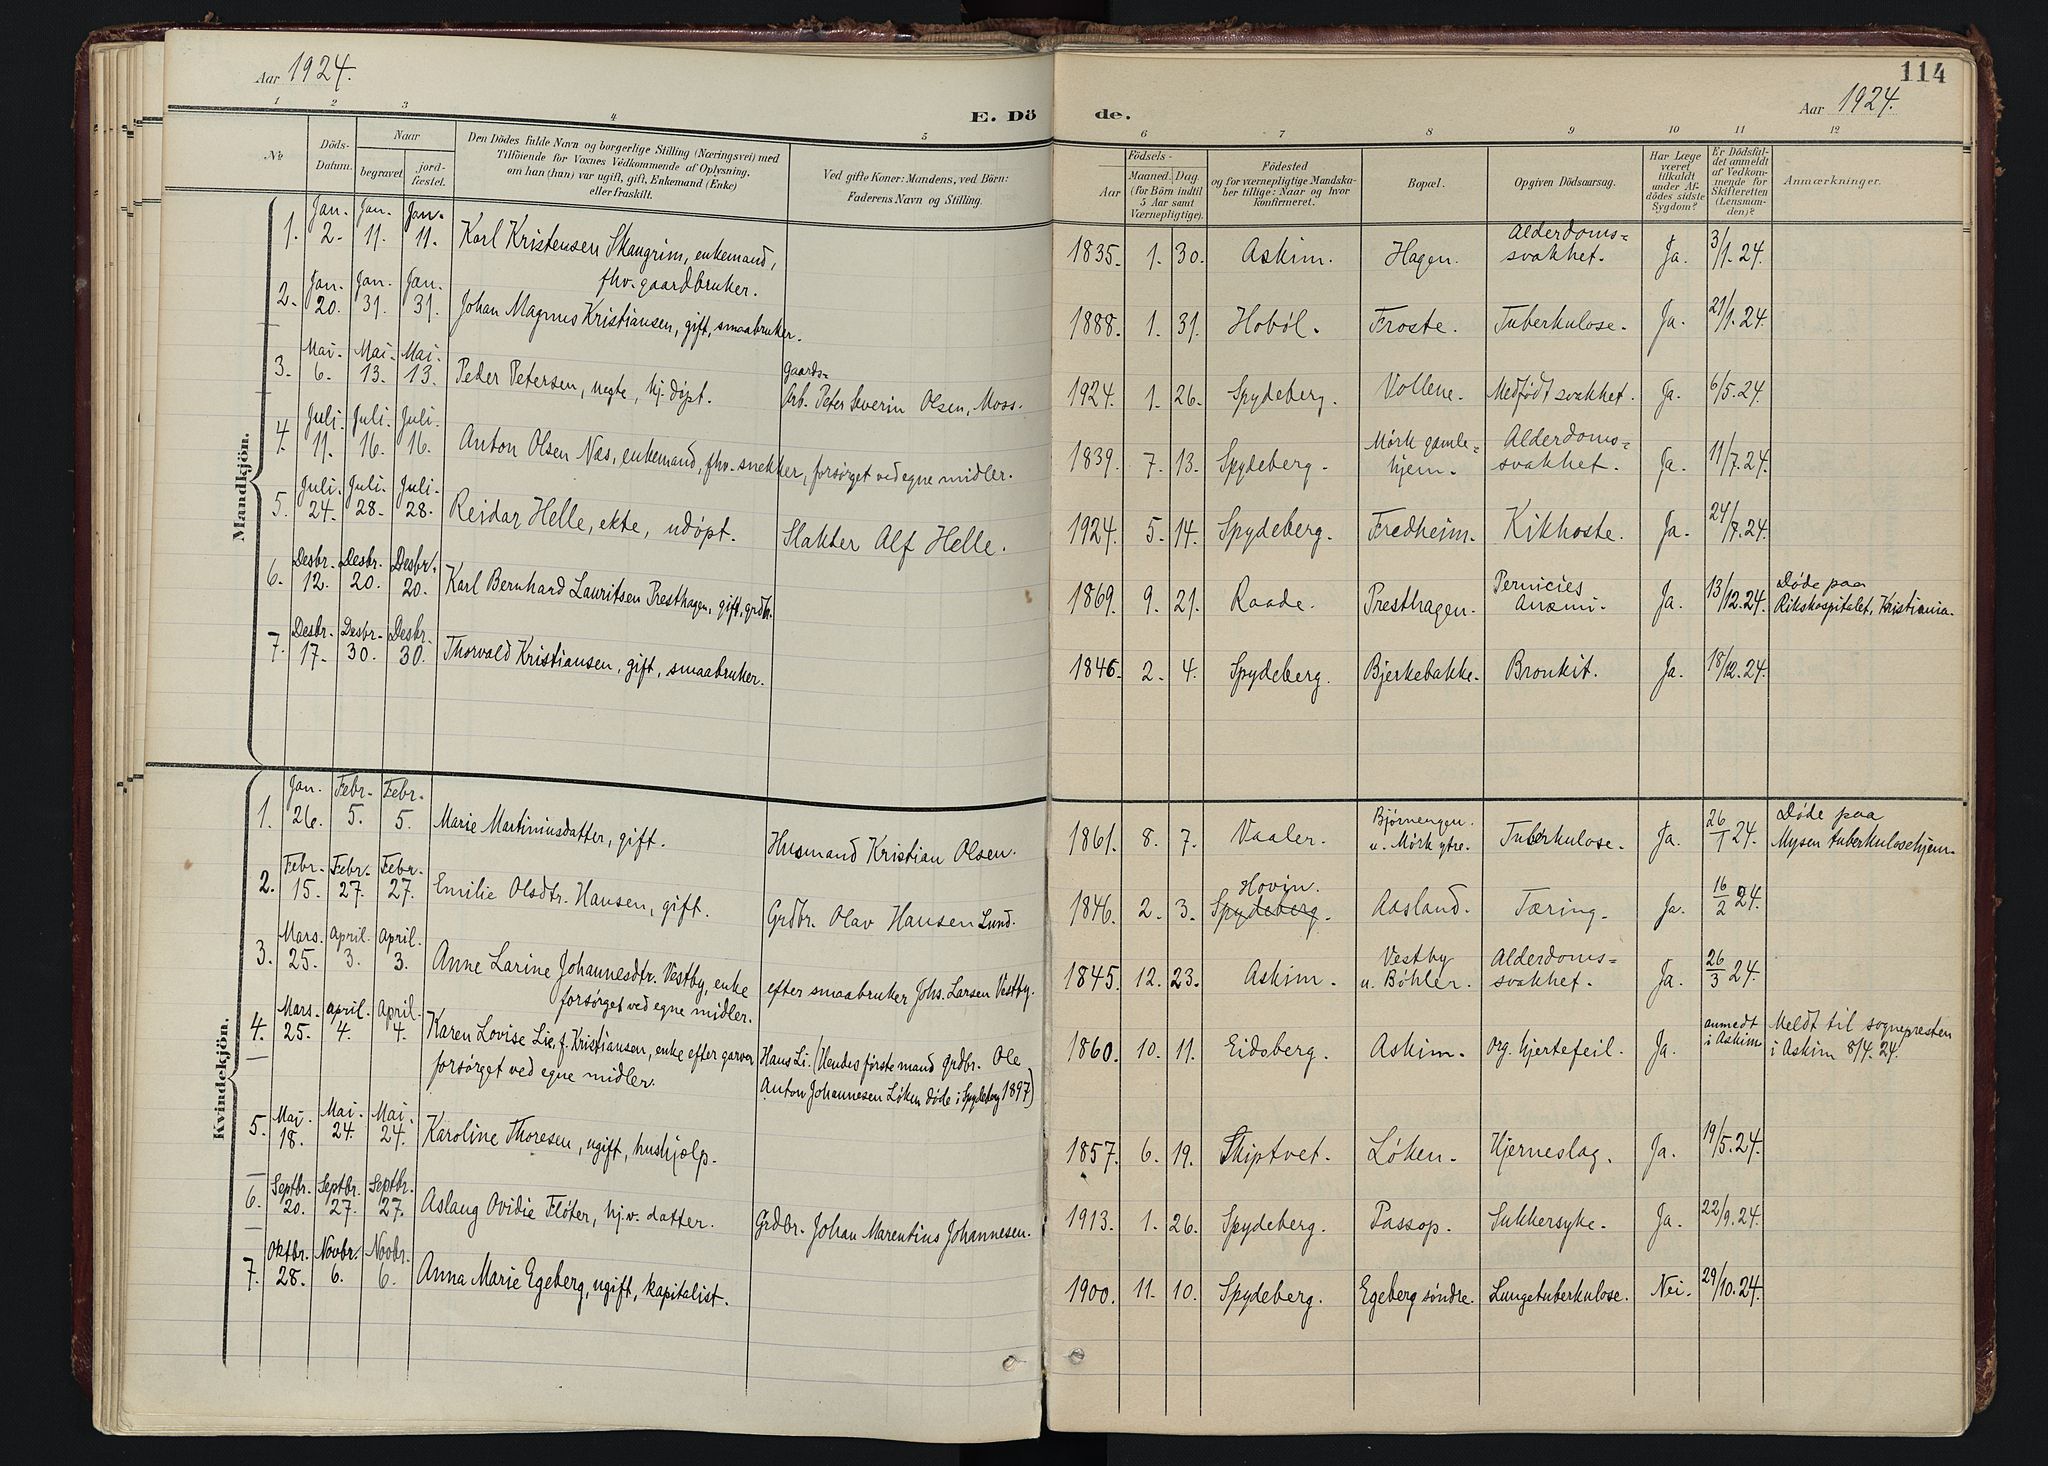 Aar 1924.
1 2 3 4 5
E. Dö
№
Döds-Datum.
Naar
begravet
jord-fæstet.
Den Dödes fulde Navn og borgerlige Stilling (Næringsvei) med
Tilföiende for Voxnes Vedkommende af Oplysning,
om han (hun) var ugift, gift, Enkemand (Enke)
eller fraskilt.
Ved gifte Koner: Mandens, ved Börn:
Faderens Navn og Stilling.
114
de.
Aar 1924.
6 7 8 9 10 11 12
Födsels-
Aar
Maaned. Dag
(for Börn indtil
5 Aar samt
Værnepligtige).
Födested
og for værnepligtige Mandska-
ber tillige: Naar og hvor
konfirmeret.
Bopæl.
Opgiven Dödsaarsag.
Har Læge
været
tilkaldt
under Af-
dödes sidste
Sygdom?
Er Dödsfal-
det anmeldt
af Vedkom-
mende for
Skifteretten
(Lensman-
den)?
Anmærkninger.
Mandkjön.
1. Jan. 2. Jan. 11. Jan. 11. Karl Kristensen Skaugrim, enkemand,
fhv. gaardbruker.
1835. 1. 30. Askim. Hagen. Alderdoms=
svakhet. Ja. 3/1.24.
2. Jan. 20. Jan. 31. Jan. 31. Johan Magnus Kristiansen, gift, smaabruker.
1888. 1. 31. Hobøl. Froste. Tuberkulose. Ja. 21/1.24.
3. Mai. 6. Mai. 13. Mai. 13. Peder Petersen, uegte, hj.døpt. gaards=
Arb. Peter Severin Olsen, Moss.
1924. 1. 26. Spydeberg. Vollene. Medfødt svakhet. Ja. 6/5.24.
4. Juli. 11. Juli. 16. Juli. 16. Anton Olsen Næs, enkemand, fhv. snekker, forsørget ved egne midler.
1839. 7. 13. Spydeberg. Mörk gamle=
hjem. Alderdoms=
svakhet. Ja. 11/7.24.
5. Juli. 24. Juli. 28. Juli. 28. Reidar Helle, ekte, udøpt. Slakter Alf Helle.
1924. 5. 14. Spydeberg. Fredheim. Kikhoste. Ja. 24/7.24.
6. Desbr. 12. Desbr. 20. Desbr. 20. Karl Bernhard Lauritsen Presthagen, gift, grdbr.
1869. 9. 21. Raade. Presthagen. Pernicies
Anæmi. Ja. 13/12.24. Døde paa
Rikshospitalet, Kristiania.
7. Desbr. 17. Desbr. 30. Desbr. 30. Thorvald Kristiansen, gift, smaabruker.
1846. 2. 4. Spydeberg. Bjerkebakke. Bronkit. Ja. 18/12.24.
Kvindekjön.
1. Jan. 26. Febr. 5. Febr. 5. Marie Martiniusdatter, gift. Husmand Kristian Olsen.
1861. 8. 7. Vaaler. Bjørnengen.
u. Mörk ytre. Tuberkulose. Ja. 26/1 24. Døde paa
Mysen tuberkulosehjem.
2. Febr. 15. Febr. 27. Febr. 27. Emilie Olsdtr. Hansen, gift. Grdbr. Olav Hansen Lund.
1846. 2. 3. Hovin.
Spydeberg. Aasland. Tæring. Ja. 16/2 24.
3. Mars. 25. April. 3. April. 3. Anne Larine Johannesdtr. Vestby, enke
forsørget ved egne midler. efter smaabruker Johs. Larsen Vestby.
1845. 12. 23. Askim. Vestby
u. Bøhler. Alderdoms=
svakhet. Ja. 26/3 24.
4. Mars. 25. April. 4. April. 4. Karen Lovise Lie, f. Kristiansen, enke efter garver
forsørget ved egne midler. Hans Li. (Hendes første mand grdbr. Ole
Anton Johannesen Løken døde i Spydeberg 1897)
1860. 10. 11. Eidsberg. Askim. Org. hjertefeil. Ja. anmedt
i Askim Meldt til sognepresten
i Askim 8/4.24.
5. Mai. 18. Mai. 24. Mai. 24. Karoline Thoresen, ugift, hushjælp.
1857. 6. 19. Skiptvet. Løken. Hjerneslag. Ja. 19/5.24.
6. Septbr. 20. Septbr. 27. Septbr. 27. Aslaug Ovidie Fløter, hj.v. datter. Grdbr. Johan Marentius Johannesen.
1913. 1. 26. Spydeberg. Passop. Sukkersyke. Ja. 22/9.24.
7. Oktbr. 28. Novbr. 6. Novbr. 6. Anna Marie Egeberg, ugift, kapitalist.
1900. 11. 10. Spydeberg. Egeberg søndre. Lungetuberkulose. Nei. 29/10.24.